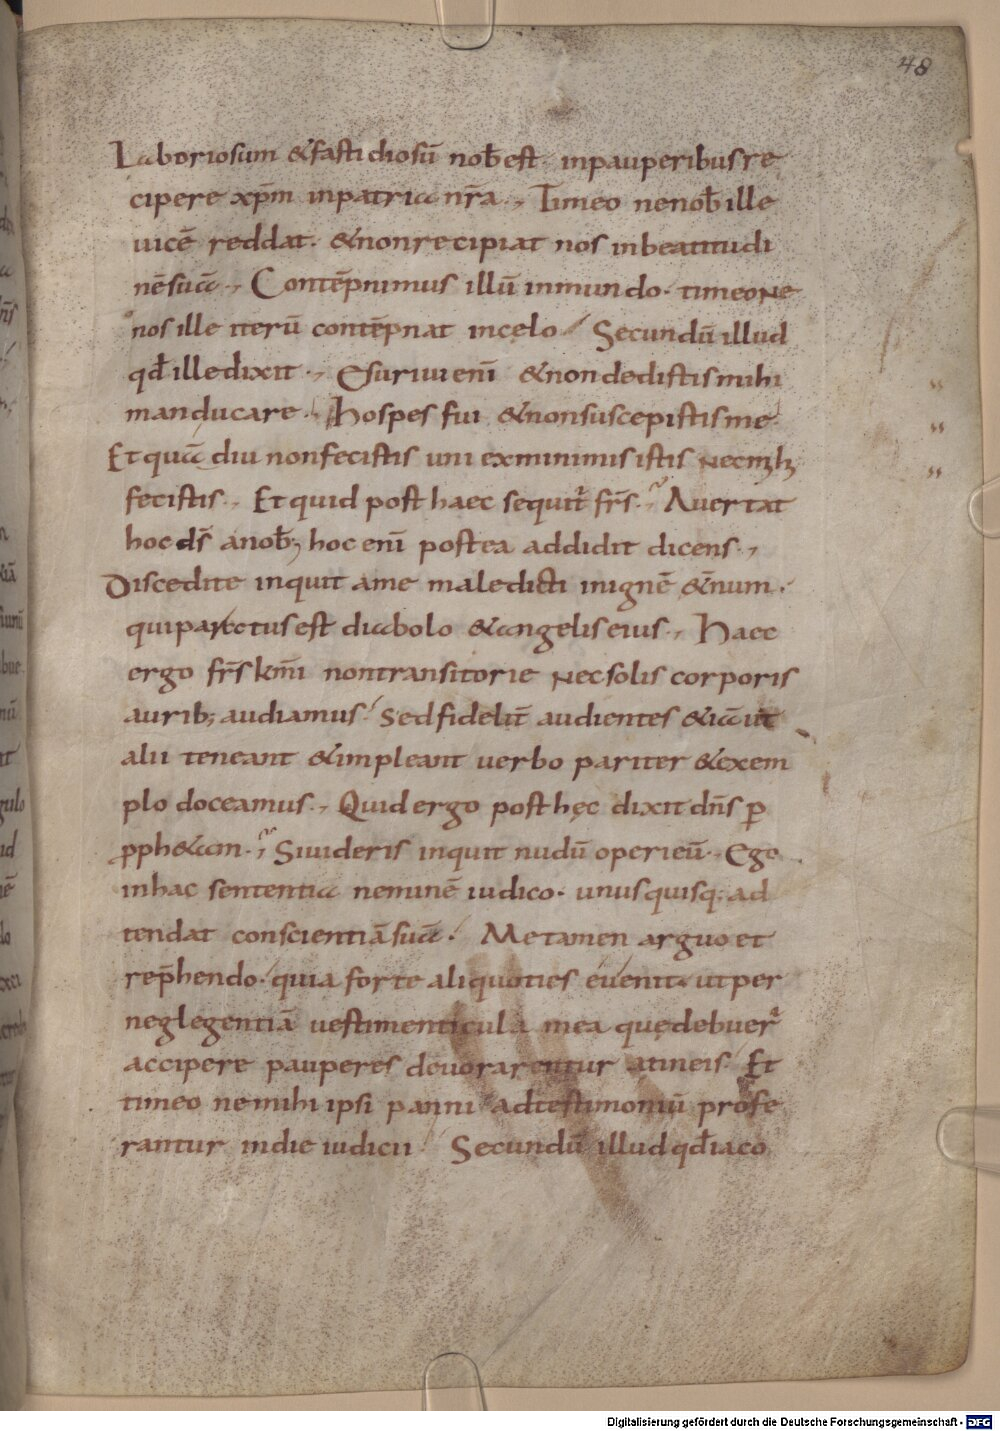 48
Laboriosum &fastidiosū nob̄ est. inpauperibus re
cipere xp̄m inpatria nr̄a., Timeo nenob̄ ille
uicē reddat. &nonrecipiat nos inbeatitudi
nē suā., Contēpnimus illū inmundo. timeo ne
nos ille iterū contēpnat incelo / Secundū illud
qd̄ ille dixit., Esuriui enī &nondedistis mihi
manducare. Hospes fui &nonsuscepistis me.
Et quā diu nonfecistis uni exminimis istis necmihi
fecistis., Et quid post haec sequit̄ fr̄s., Auertat
hoc ds̄ anob; hoc enī postea addidit dicens.,
Discedite inquit ame maledicti inignē &̄num.
quiparatus est diabolo &angelis eius., Haec
ergo fr̄s km̄i nontransitorie necsolis corporis
aurib; audiamus. Sed fidelit̄ audientes &iā ut
alii teneant &impleant uerbo pariter &exem
plo doceamus., Quid ergo post hęc dixit dn̄s ꝑ
ꝓph&am., Siuideris inquit nudū operi eū., Ego
inhac sententia neminē iudico. unusquisq; ad
tendat conscientiā suā. Me tamen arguo et
rep̄hendo. quia forte aliquoties euenit. ut per
neglegentiā uestimenticula mea quę debuer̄
accipere pauperes deuorarentur atineis. Et
timeo nemihi ipsi panni adtestimoniū profe
rantur indie iudicii Secundū illud qd̄ iaco
Digitalisierung gefördert durch die Deutsche Forschungsgemeinschaft - DFG